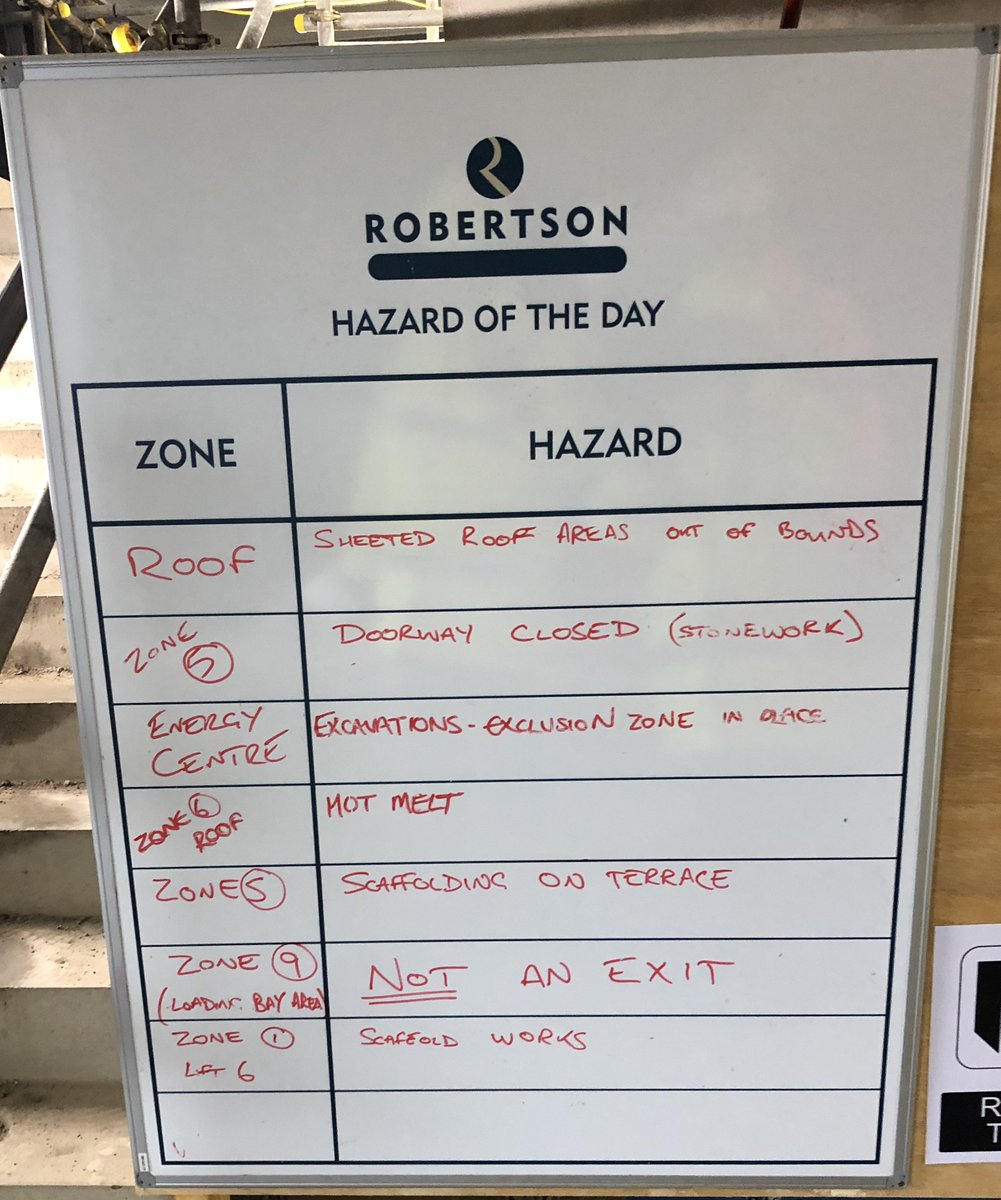 ROBERTSON
HAZARD OF THE DAY
ZONE
HAZARD
ROOF
SHEETED ROOF AREAS OUT OF BOUNDS
ZONE
5
DOORWAY CLOSED (STONEWORK)
ENERGY
CENTRE
EXCAVATIONS - EXCLUSION ZONE IN PLACE
ZONE 6
ROOF
HOT MELT
ZONE 5
SCAFFOLDING ON TERRACE
ZONE 9
(LOADING BAY AREA)
NOT AN EXIT
ZONE 1
LIFT 6
SCAFFOLD WORKS
R
T